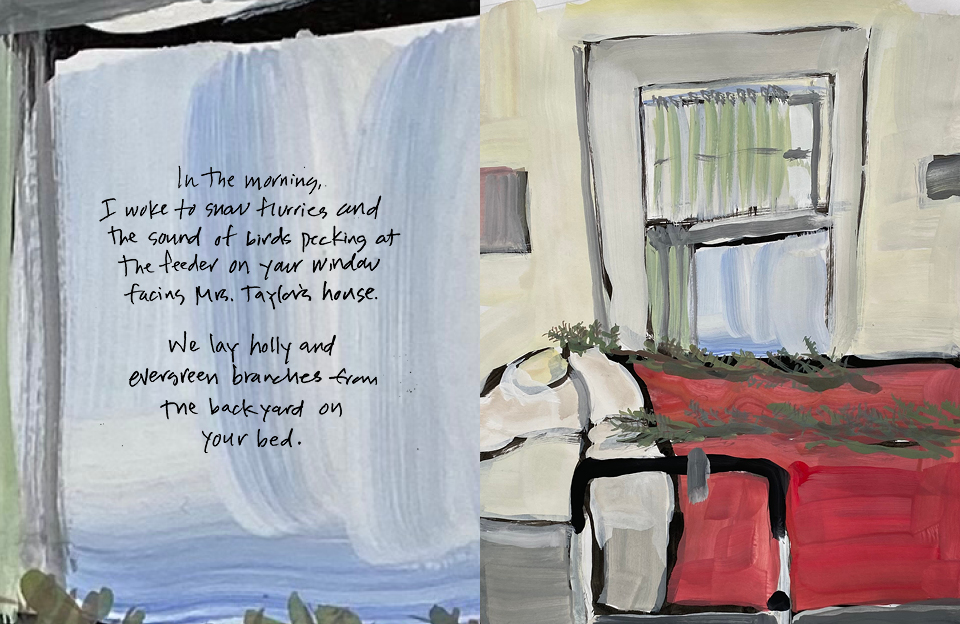 In the morning,
I woke to snow flurries and
the sound of birds pecking at
the feeder on your window
facing Mrs. Taylor's house.
We lay holly and
evergreen branches from
the backyard on
your bed.